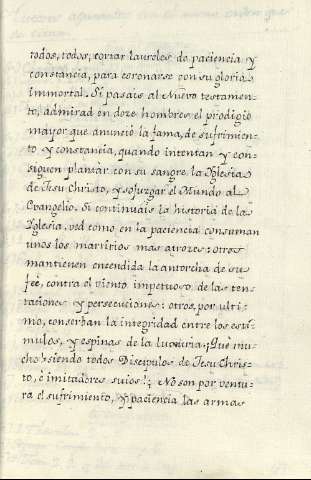 todos, todos, cortar laureles de paciencia y
constancia, para coronarse con su gloria
immortal. Si pasais al Nuevo testamen=
to, admirad en doze hombres el prodigio
mayor que anunció la fama, de sufrimien=
to y constancia, quando intentan y con=
siguen plantar con su sangre la Iglesia
de Jesu Christo, y sojuzgar el Mundo al
Evangelio. Si continuáis la historia de la
Iglesia, ved como en la paciencia consuman
unos los martirios mas atrozes: otros
mantienen encendida la antorcha de su
feè, contra el viento impetuoso, de las ten=
taciones y persecuciones: otros, por ulti=
mo, conserban la integridad entre los esti=
mulos, y espinas de la luxuria; ¡Què mu=
cho! siendo todos Discipulos de Jesu Chris=
to, è imitadores suios!¿ No son por ventu=
ra el sufrimiento, y paciencia las armas